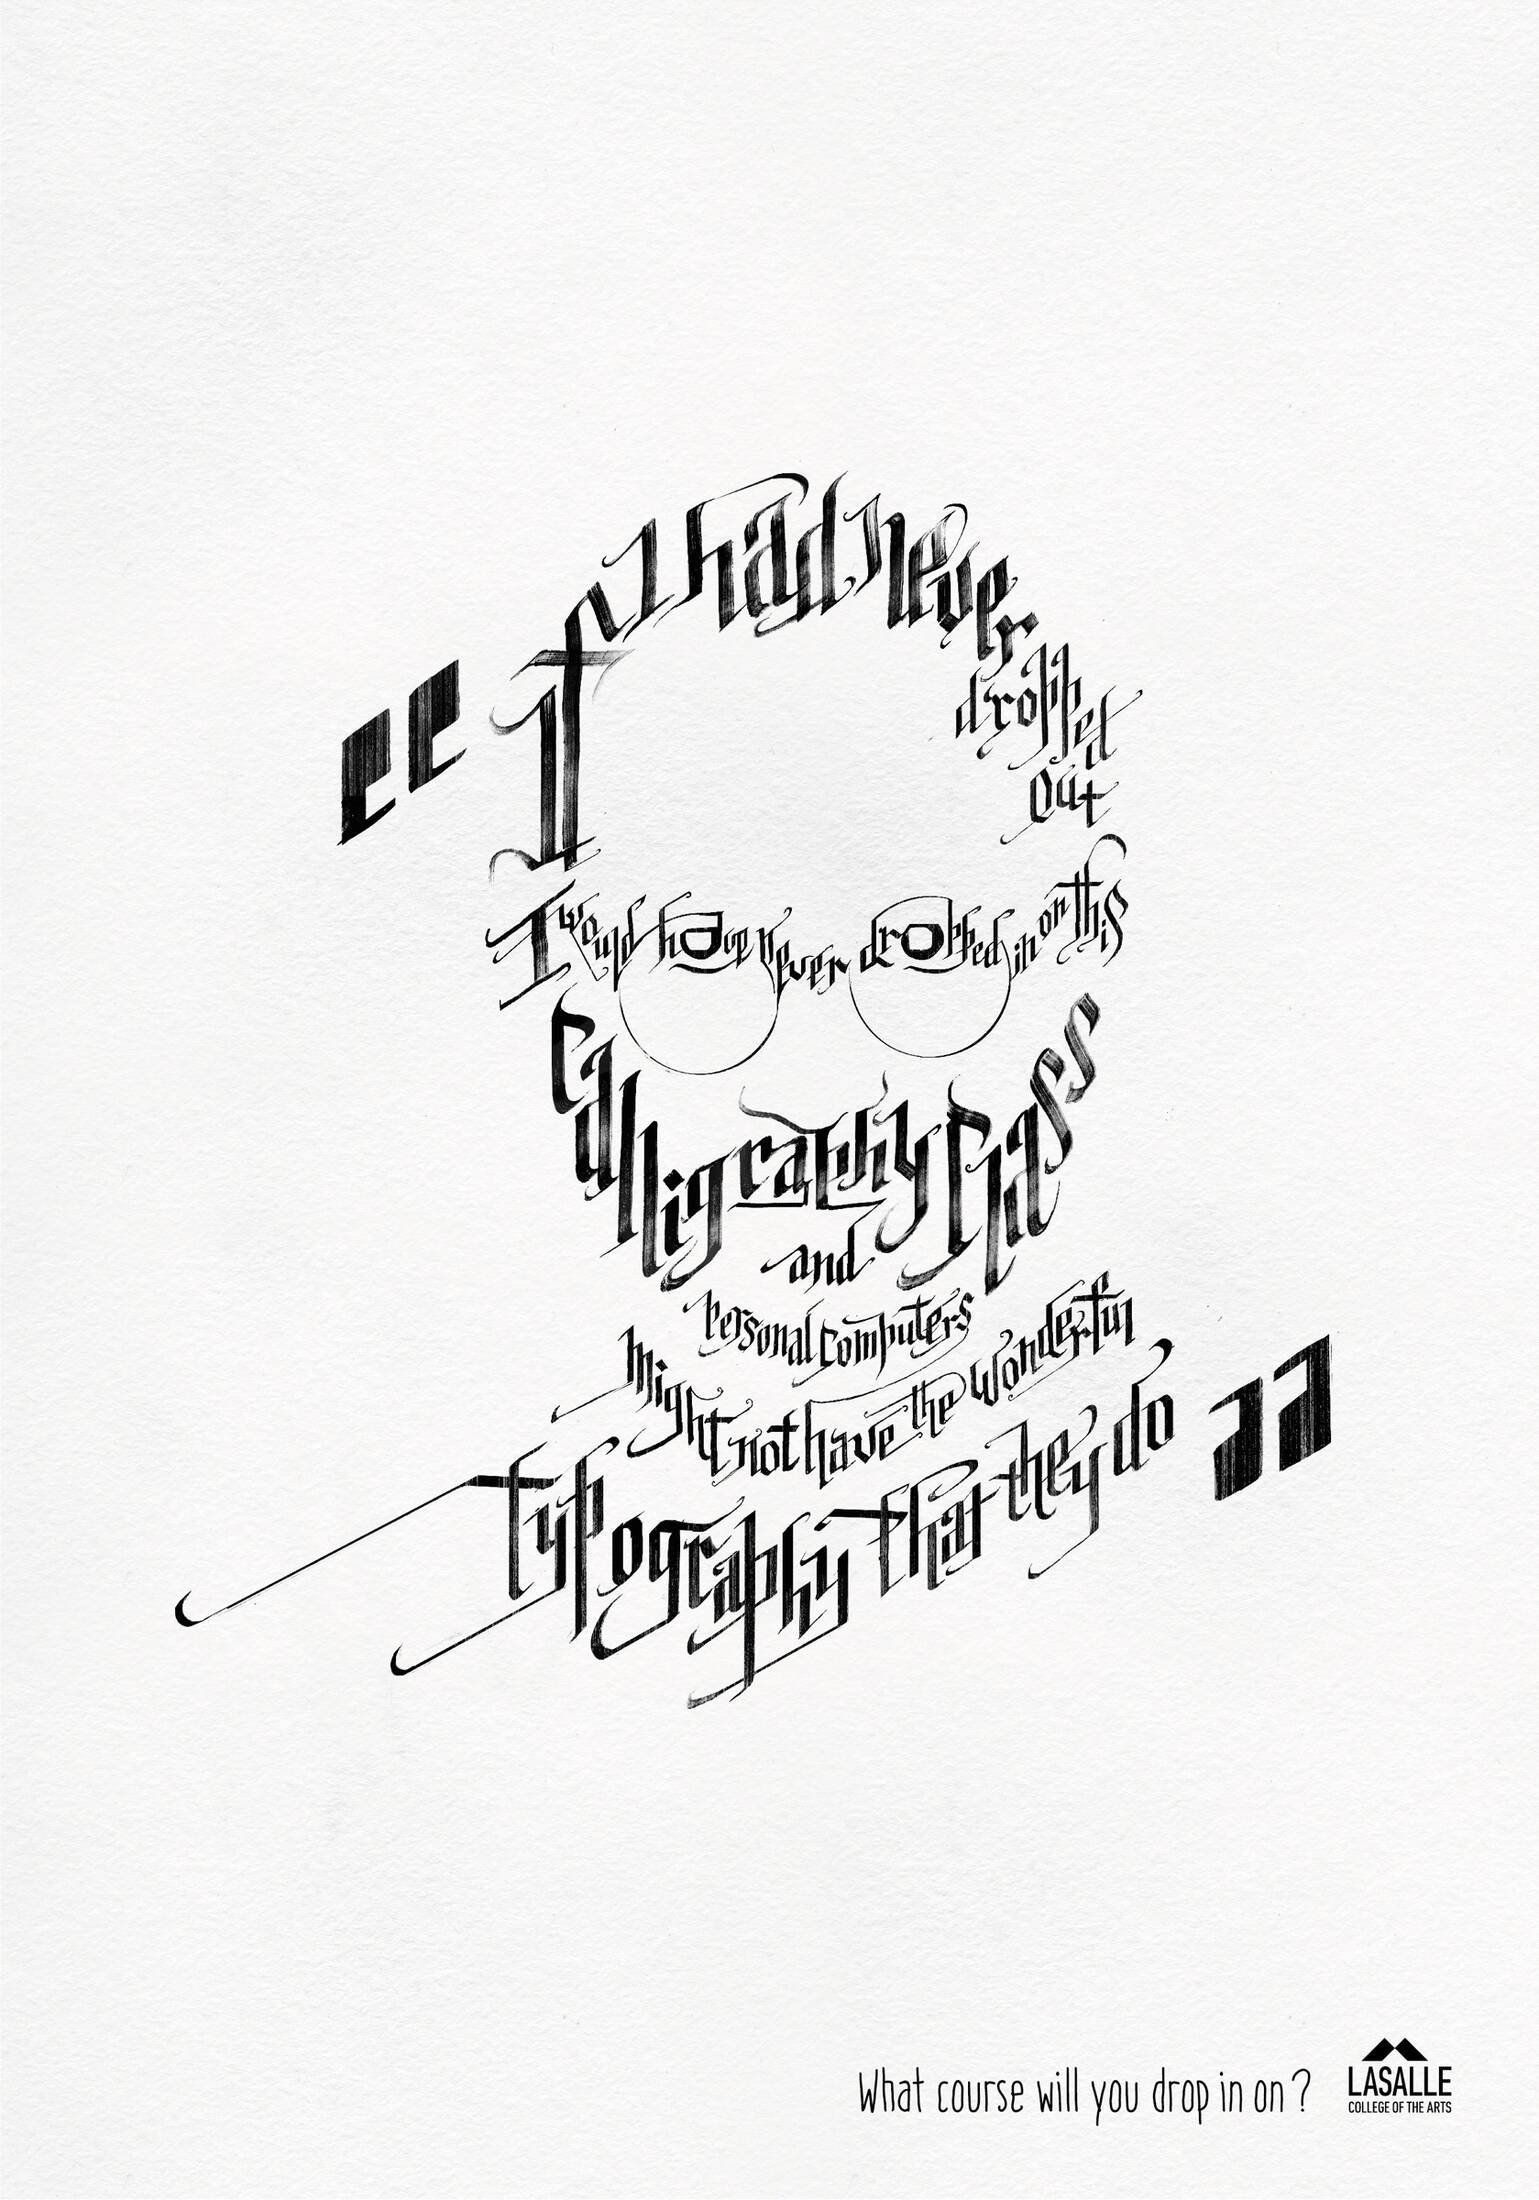 “If I had never
dropped
out
I would have never dropped in on this
Calligraphy Class
and
personal computers
might not have the wonderful
typography that they do”
What course will you drop in on?
LASALLE
COLLEGE OF THE ARTS